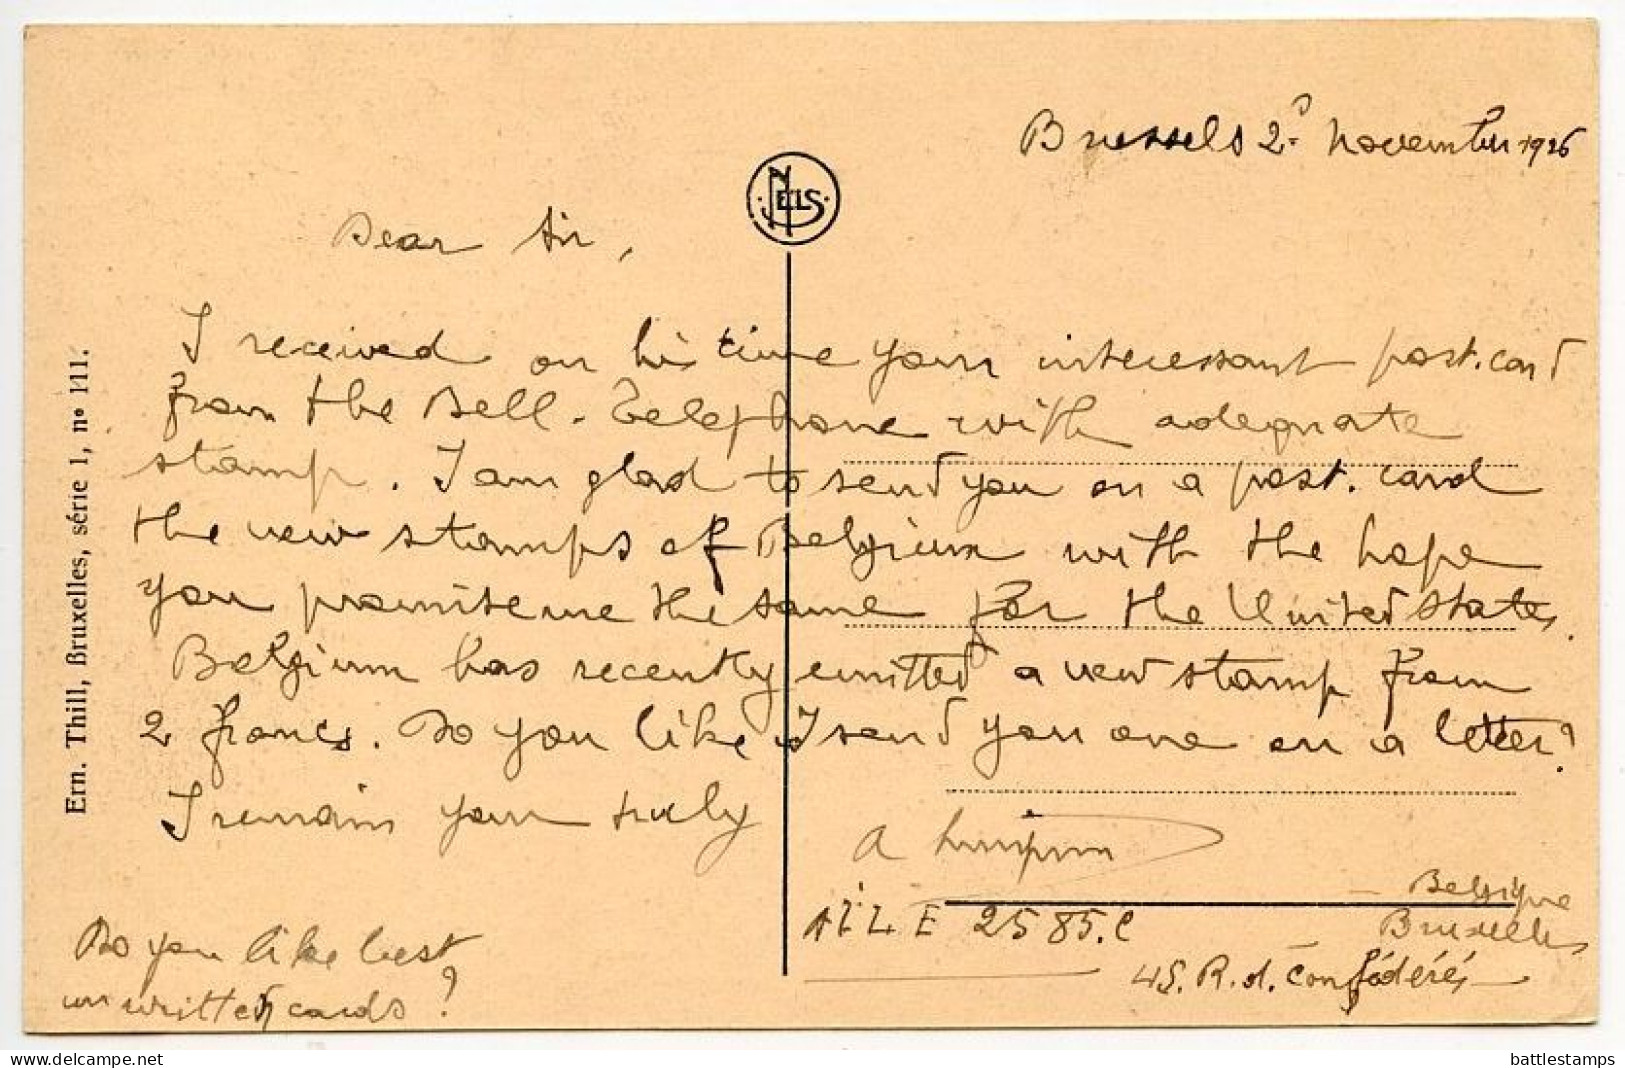 Brussels 2d November 1926
NELS
Dear Sir,
I received on his time your interessant post.card
from the Bell-Telephone with adequate
stamp. I am glad to send you on a post.card
the new stamps of Belgium with the hope
you promise me the same for the United States.
Belgium has recently emitted a new stamp from
2 francs. Do you like I send you one on a letter?
I remain your truly
A
Belgique
Bruxelles
2585.C
45. R. d. Confédérés
Do you like best
unwritten cards?
Ern. Thill, Bruxelles, série 1, nº 111.
battlestamps